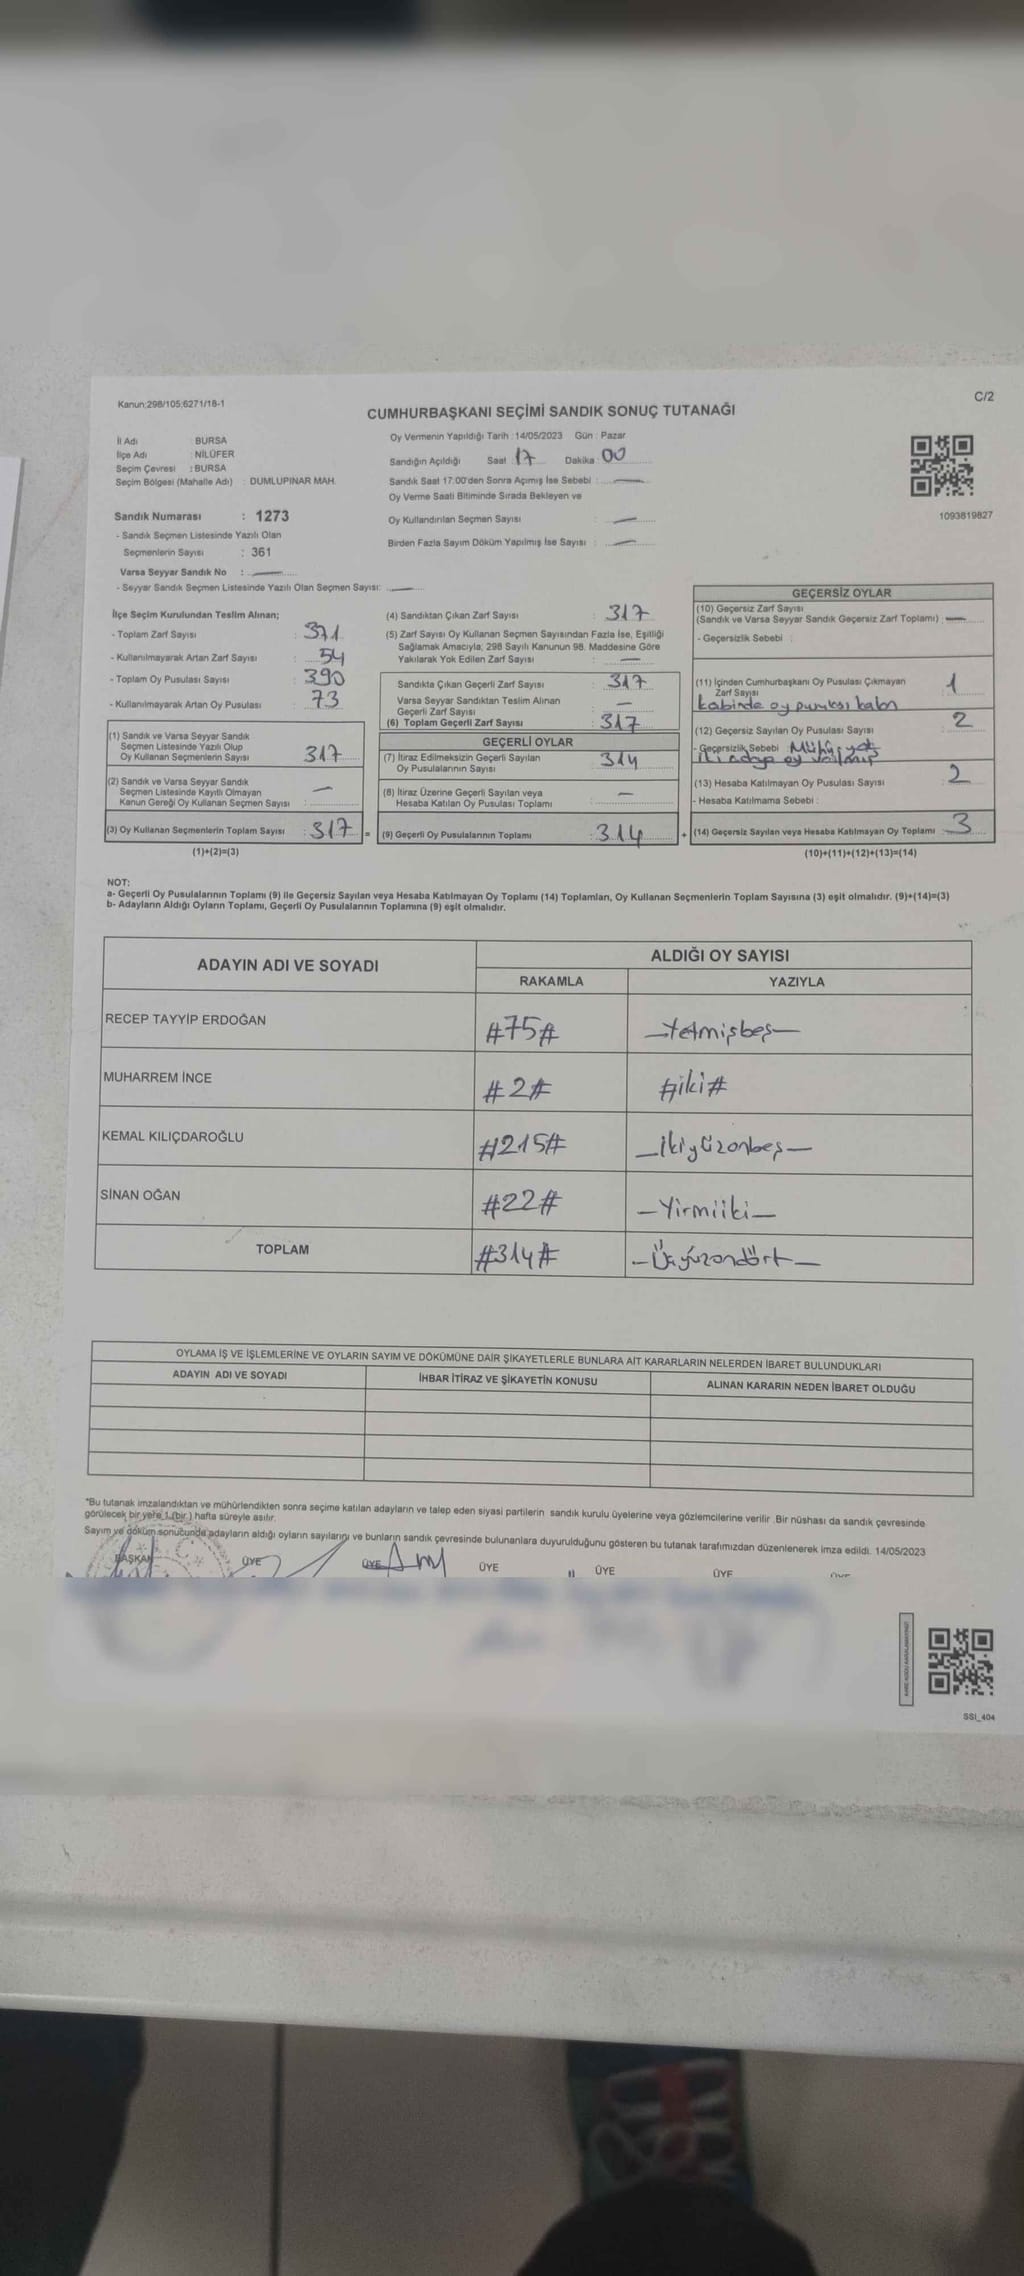 Kanun:298/105;6271/18-1
C/2
CUMHURBAŞKANI SEÇİMİ SANDIK SONUÇ TUTANAĞI
İl Adı : BURSA
İlçe Adı : NİLÜFER
Seçim Çevresi : BURSA
Seçim Bölgesi (Mahalle Adı) : DUMLUPINAR MAH.
Oy Vermenin Yapıldığı Tarih : 14/05/2023 Gün : Pazar
Sandığın Açıldığı Saat 17 Dakika : 00
Sandık Saat 17.00'den Sonra Açımış İse Sebebi : —
Oy Verme Saati Bitiminde Sırada Bekleyen ve
Oy Kullandırılan Seçmen Sayısı : —
Birden Fazla Sayım Döküm Yapılmış İse Sayısı : —
1093819827
Sandık Numarası : 1273
- Sandık Seçmen Listesinde Yazılı Olan
Seçmenlerin Sayısı : 361
Varsa Seyyar Sandık No : —
- Seyyar Sandık Seçmen Listesinde Yazılı Olan Seçmen Sayısı: —
İlçe Seçim Kurulundan Teslim Alınan;
- Toplam Zarf Sayısı : 371
- Kullanılmayarak Artan Zarf Sayısı : 54
- Toplam Oy Pusulası Sayısı : 390
- Kullanılmayarak Artan Oy Pusulası : 73
(1) Sandık ve Varsa Seyyar Sandık
Seçmen Listesinde Yazılı Olup
Oy Kullanan Seçmenlerin Sayısı : 317
(2) Sandık ve Varsa Seyyar Sandık
Seçmen Listesinde Kayıtlı Olmayan
Kanun Gereği Oy Kullanan Seçmen Sayısı : —
(3) Oy Kullanan Seçmenlerin Toplam Sayısı : 317 =
(1)+(2)=(3)
(4) Sandıktan Çıkan Zarf Sayısı : 317
(5) Zarf Sayısı Oy Kullanan Seçmen Sayısından Fazla İse, Eşitliği
Sağlamak Amacıyla, 298 Sayılı Kanunun 98. Maddesine Göre
Yakılarak Yok Edilen Zarf Sayısı : —
Sandıkta Çıkan Geçerli Zarf Sayısı : 317
Varsa Seyyar Sandıktan Teslim Alınan
Geçerli Zarf Sayısı : —
(6) Toplam Geçerli Zarf Sayısı : 317
GEÇERLİ OYLAR
(7) İtiraz Edilmeksizin Geçerli Sayılan
Oy Pusulalarının Sayısı : 314
(8) İtiraz Üzerine Geçerli Sayılan veya
Hesaba Katılan Oy Pusulası Toplamı : —
(9) Geçerli Oy Pusulalarının Toplamı : 314 +
GEÇERSİZ OYLAR
(10) Geçersiz Zarf Sayısı
(Sandık ve Varsa Seyyar Sandık Geçersiz Zarf Toplamı) : —
- Geçersizlik Sebebi :
(11) İçinden Cumhurbaşkanı Oy Pusulası Çıkmayan
Zarf Sayısı : 1
kabinde oy
(12) Geçersiz Sayılan Oy Pusulası Sayısı : 2
- Geçersizlik Sebebi Mühür yok
iki adaya oy
(13) Hesaba Katılmayan Oy Pusulası Sayısı : 2
- Hesaba Katılmama Sebebi :
(14) Geçersiz Sayılan veya Hesaba Katılmayan Oy Toplamı : 3
(10)+(11)+(12)+(13)=(14)
NOT:
a- Geçerli Oy Pusulalarının Toplamı (9) ile Geçersiz Sayılan veya Hesaba Katılmayan Oy Toplamı (14) Toplamları, Oy Kullanan Seçmenlerin Toplam Sayısına (3) eşit olmalıdır. (9)+(14)=(3)
b- Adayların Aldığı Oyların Toplamı, Geçerli Oy Pusulalarının Toplamına (9) eşit olmalıdır.
ADAYIN ADI VE SOYADI
ALDIĞI OY SAYISI
RAKAMLA YAZIYLA
RECEP TAYYİP ERDOĞAN #75# —Yetmişbeş—
MUHARREM İNCE #2# #iki#
KEMAL KILIÇDAROĞLU #215# —İkiyüzonbeş—
SİNAN OĞAN #22# —Yirmiiki—
TOPLAM #314# —Üçyüzondört—
OYLAMA İŞ VE İŞLEMLERİNE VE OYLARIN SAYIM VE DÖKÜMÜNE DAİR ŞİKAYETLERLE BUNLARA AİT KARARLARIN NELERDEN İBARET BULUNDUKLARI
ADAYIN ADI VE SOYADI İHBAR İTİRAZ VE ŞİKAYETİN KONUSU ALINAN KARARIN NEDEN İBARET OLDUĞU
*Bu tutanak imzalandıktan ve mühürlendikten sonra seçime katılan adayların ve talep eden siyasi partilerin sandık kurulu üyelerine veya gözlemcilerine verilir. Bir nüshası da sandık çevresinde
görülecek bir yere 1 (bir ) hafta süreyle asılır.
Sayım ve döküm sonucunda adayların aldığı oyların sayılarını ve bunların sandık çevresinde bulunanlara duyurulduğunu gösteren bu tutanak tarafımızdan düzenlenerek imza edildi. 14/05/2023
BAŞKAN ÜYE ÜYE ÜYE ÜYE ÜYE ÜYE
SSI_404